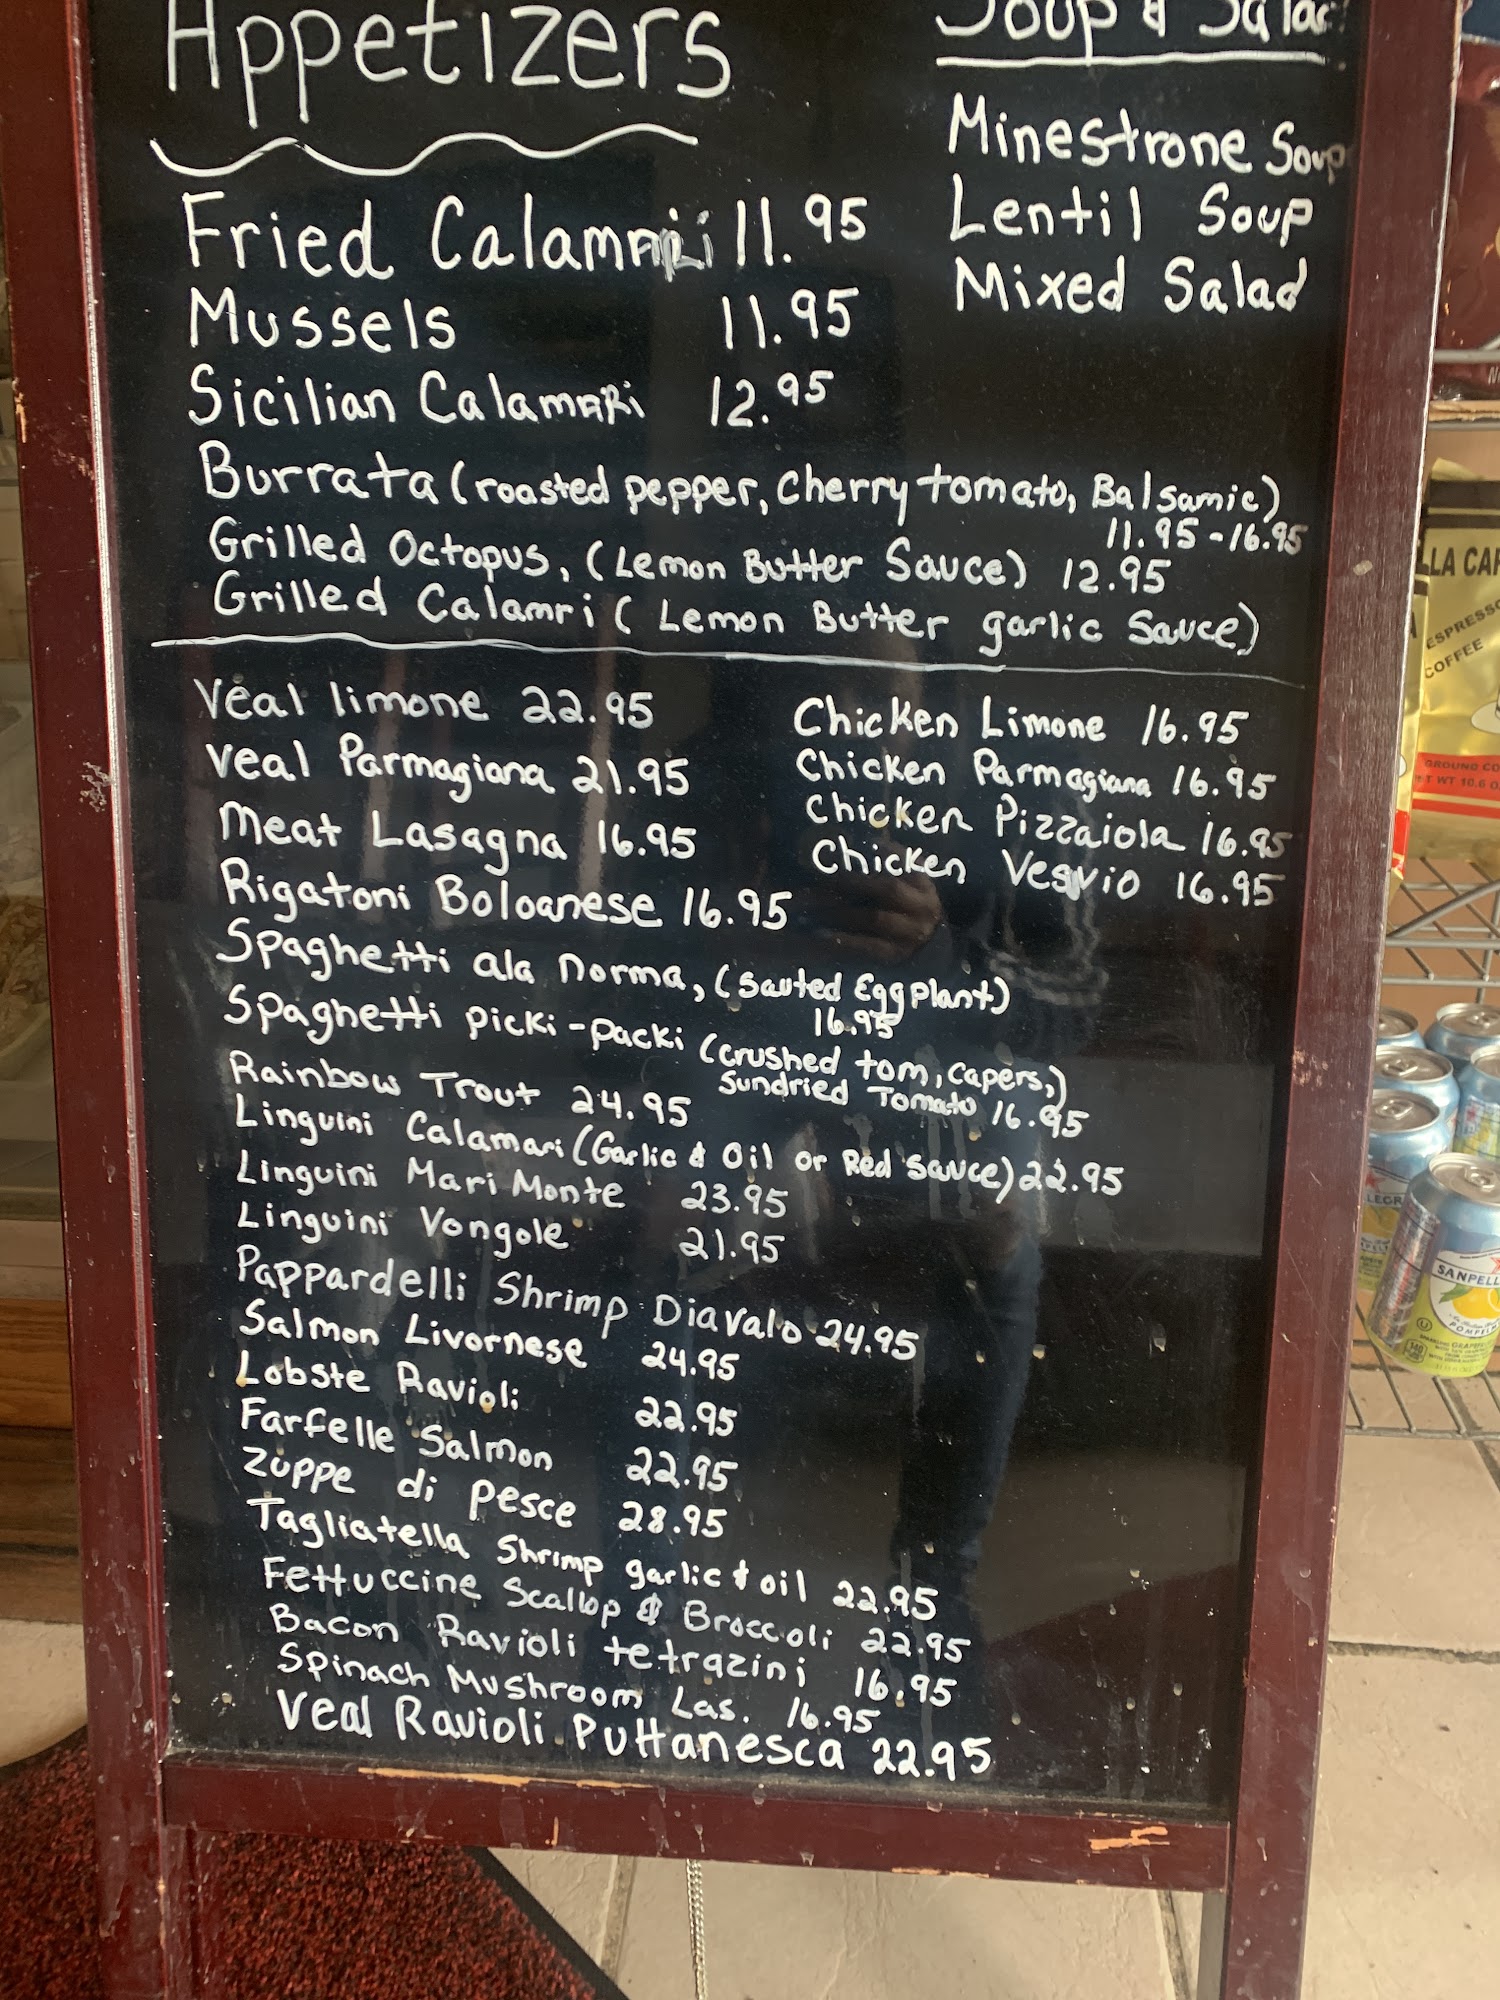 Appetizers
Fried Calamari 11.95
Mussels 11.95
Sicilian Calamari 12.95
Burrata (roasted pepper, Cherry tomato, Balsamic)
11.95-16.95
Grilled Octopus, (Lemon Butter Sauce) 12.95
Grilled Calamri (Lemon Butter garlic Sauce)
Soup & Salad
Minestrone Soup
Lentil Soup
Mixed Salad
Veal limone 22.95
Veal Parmagiana 21.95
Meat Lasagna 16.95
Rigatoni Boloanese 16.95
Chicken Limone 16.95
Chicken Parmagiana 16.95
Chicken Pizzaiola 16.95
Chicken Vesvio 16.95
Spaghetti ala Norma, (Sauted Eggplant)
16.95
Spaghetti picki-packi (crushed tom, capers,)
Sundried Tomato 16.95
Rainbow Trout 24.95
Linguini Calamari (Garlic & Oil or Red Sauce) 22.95
Linguini Mari Monte 23.95
Linguini Vongole 21.95
Pappardelli Shrimp Diavalo 24.95
Salmon Livornese 24.95
Lobste Ravioli 22.95
Farfelle Salmon 22.95
Zuppe di pesce 28.95
Tagliatella Shrimp garlic & oil 22.95
Fettuccine Scallop & Broccoli 22.95
Bacon Ravioli tetrazini 16.95
Spinach Mushroom Las. 16.95
Veal Ravioli Puttanesca 22.95
LLA CAF
ESPRESSO
COFFEE
GROUND CO
WT 10.6 O
SANPELL
POMPEL